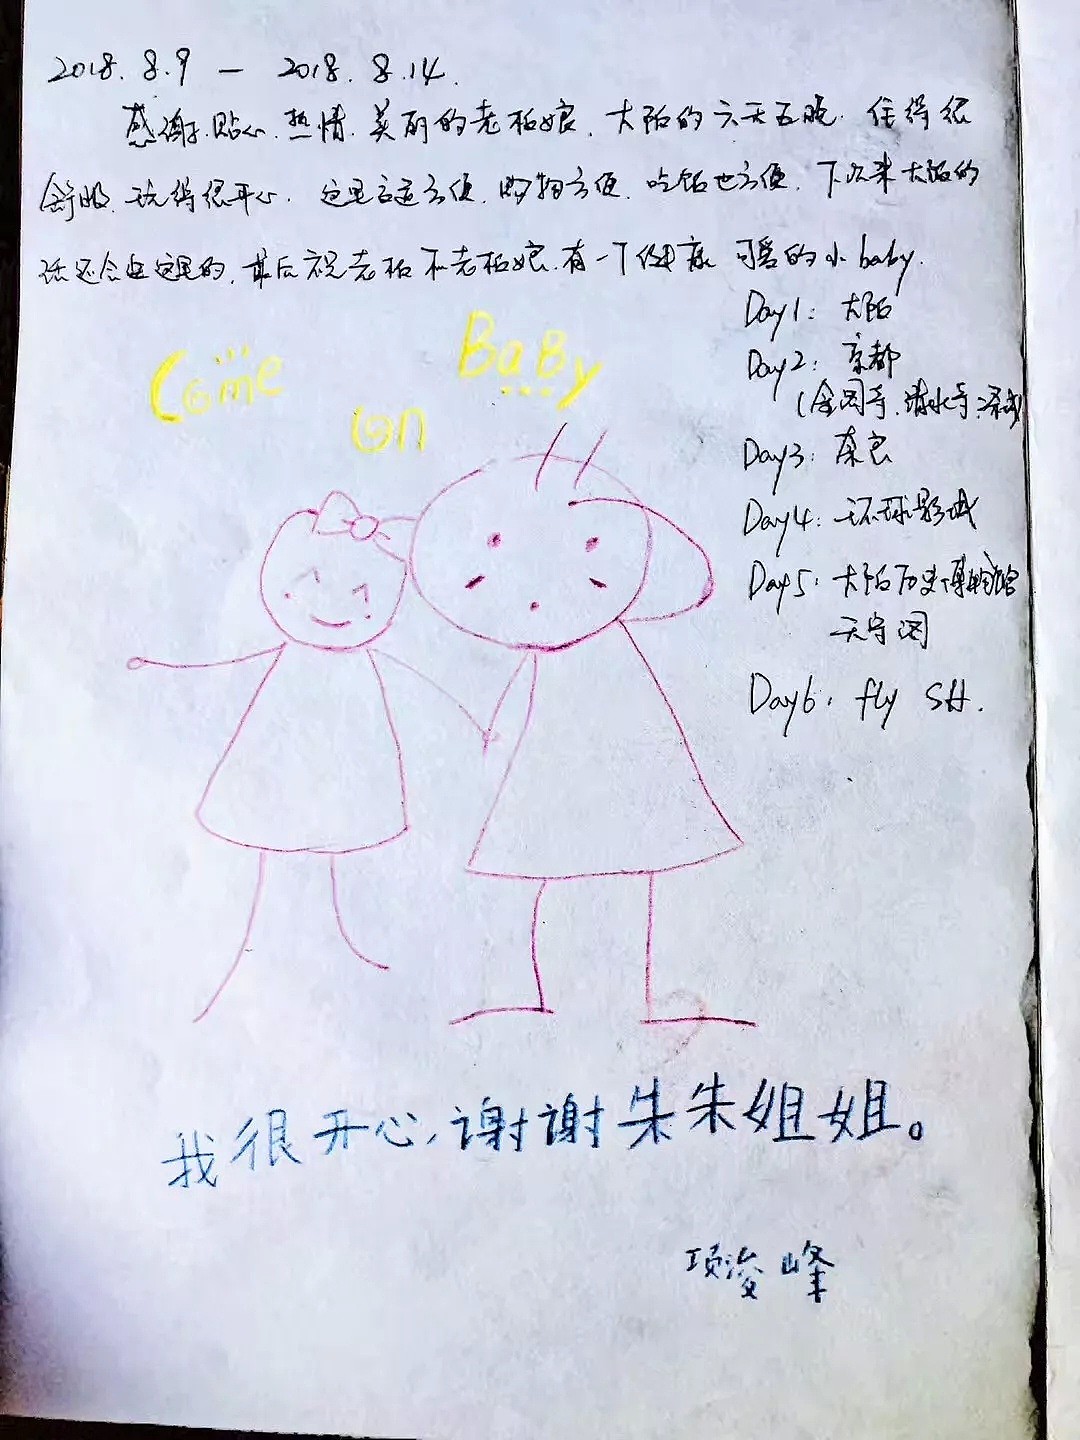 2018.8.9 — 2018.8.14.
感谢贴心.热情.美丽的老板娘.大阪的六天五晚.住得很
舒服.玩得很开心.这里交通方便.购物方便.吃饭也方便.下次来大阪的
话还会来这里的.最后祝老板和老板娘.有一个健康可爱的小baby.
Day1: 大阪
Day2: 京都
(金阁寺.清水寺.
Day3: 奈良
Day4: 环球影城
Day5: 大阪历史博物馆
天守阁
Day6: fly SH.
Come
on
BaBy
我很开心,谢谢朱朱姐姐。
项浚峰